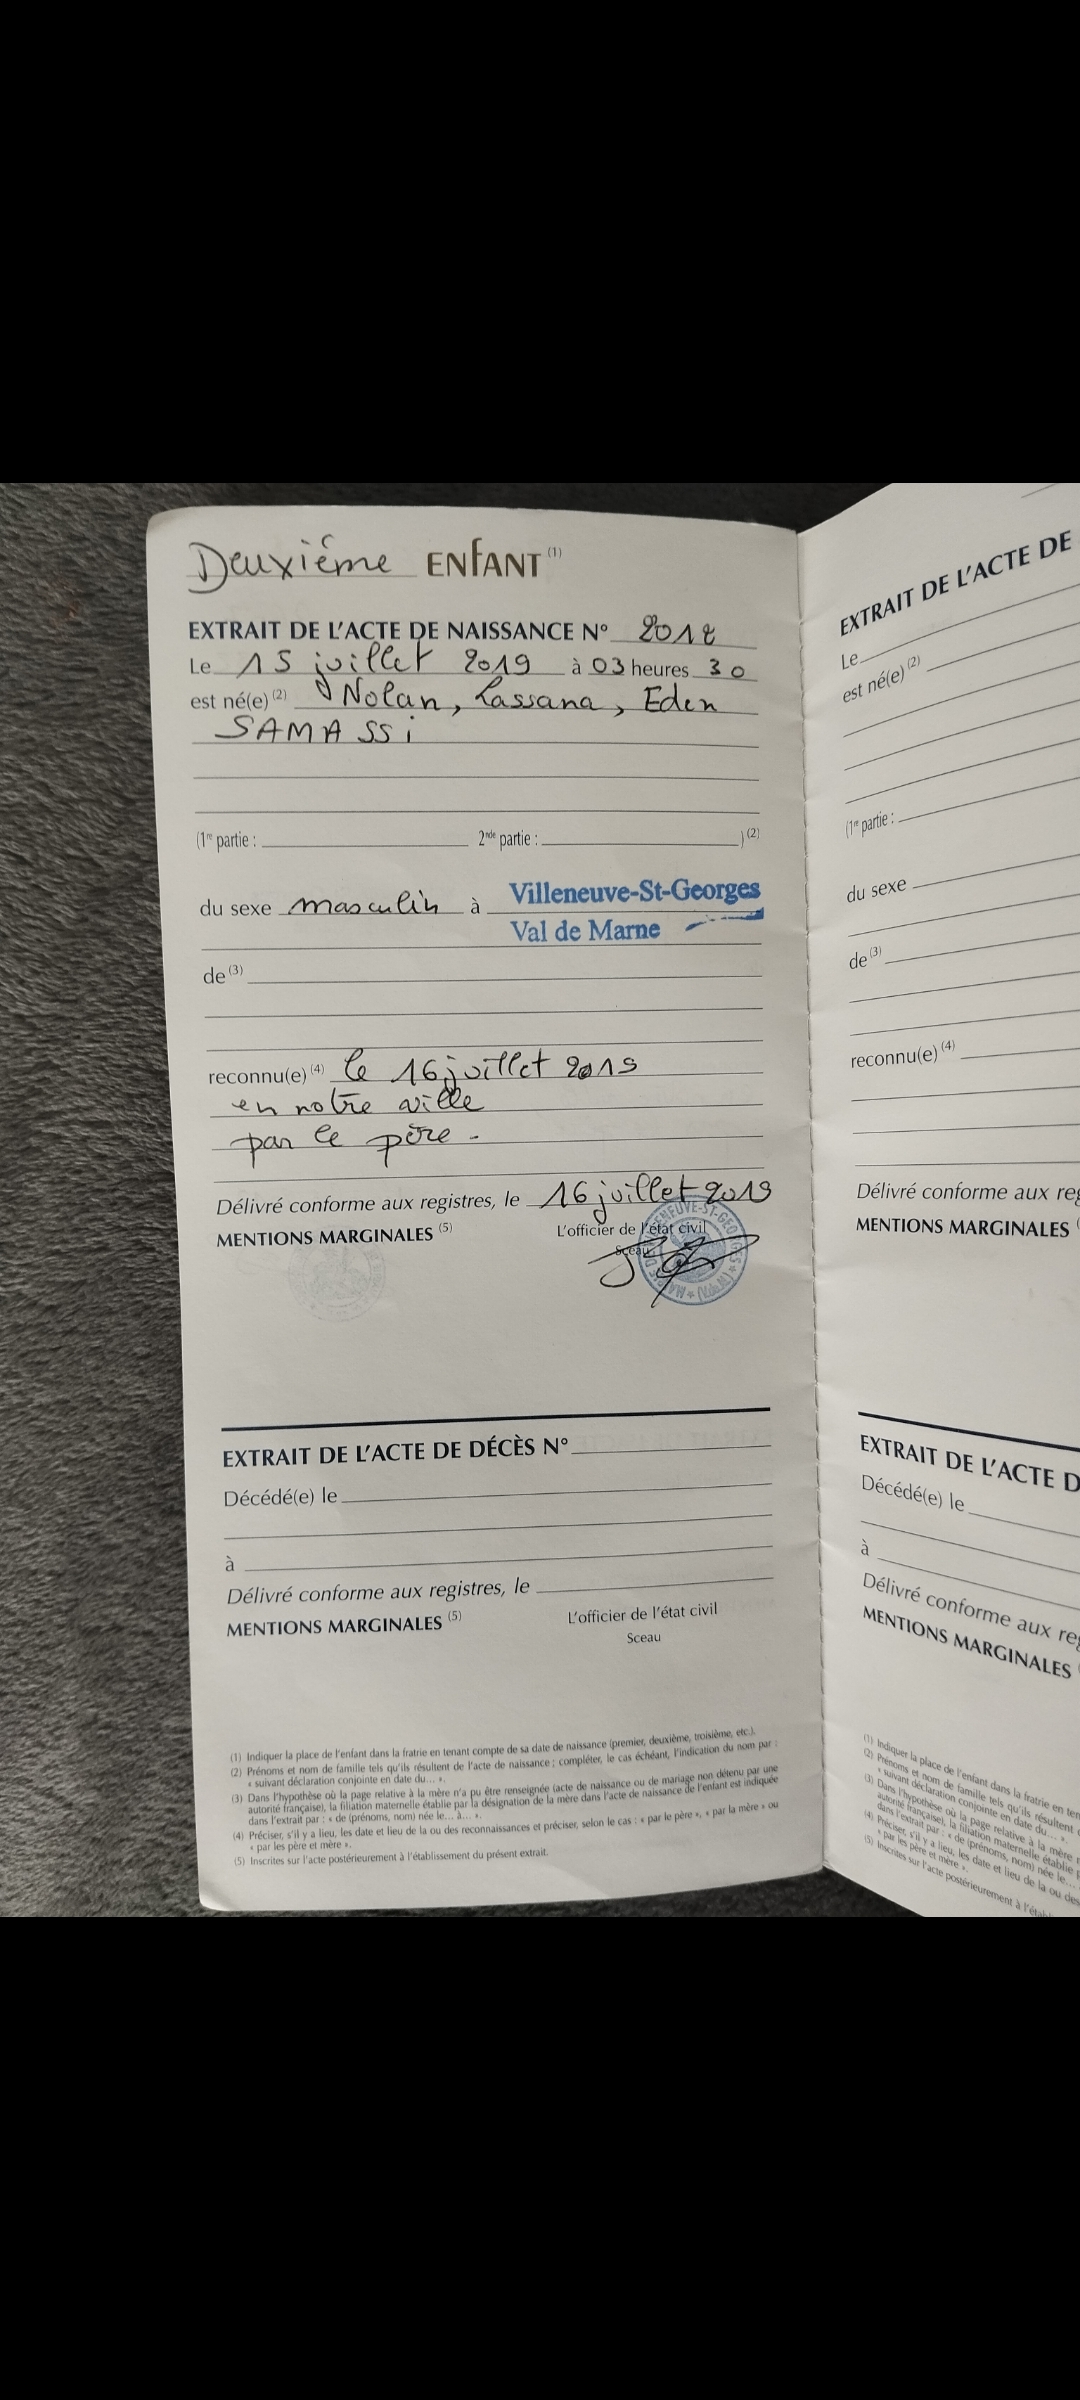 Deuxiéme ENFANT (1)
EXTRAIT DE L'ACTE DE NAISSANCE N° 2012
Le 15 juillet 2019 à 03 heures 30
est né(e) (2) Nolan, Lassana, Eden
SAMASSi
(1re partie : 2nde partie : ) (2)
du sexe masculin à Villeneuve-St-Georges
Val de Marne
de (3)
reconnu(e) (4) le 16 juillet 2019
en notre ville
par le père -
Délivré conforme aux registres, le 16 juillet 2019
MENTIONS MARGINALES (5) L'officier de l'état civil
Sceau
EXTRAIT DE L'ACTE DE DÉCÈS N°
Décédé(e) le
à
Délivré conforme aux registres, le
MENTIONS MARGINALES (5) L'officier de l'état civil
Sceau
(1) Indiquer la place de l'enfant dans la fratrie en tenant compte de sa date de naissance (premier, deuxième, troisième, etc.).
(2) Prénoms et nom de famille tels qu'ils résultent de l'acte de naissance ; compléter, le cas échéant, l'indication du nom par :
« suivant déclaration conjointe en date du... ».
(3) Dans l'hypothèse où la page relative à la mère n'a pu être renseignée (acte de naissance ou de mariage non détenu par une
autorité française), la filiation maternelle établie par la désignation de la mère dans l'acte de naissance de l'enfant est indiquée
dans l'extrait par : « de (prénoms, nom) née le... à... ».
(4) Préciser, s'il y a lieu, les date et lieu de la ou des reconnaissances et préciser, selon le cas : « par le père », « par la mère » ou
« par les père et mère ».
(5) Inscrites sur l'acte postérieurement à l'établissement du présent extrait.
EXTRAIT DE L'ACTE DE
Le
est né(e) (2)
(1re partie :
du sexe
de (3)
reconnu(e) (4)
Délivré conforme aux reg
MENTIONS MARGINALES
EXTRAIT DE L'ACTE D
Décédé(e) le
à
Délivré conforme aux reg
MENTIONS MARGINALES
(1) Indiquer la place de l'enfant dans la fratrie en ten
(2) Prénoms et nom de famille tels qu'ils résultent d
« suivant déclaration conjointe en date du... ».
(3) Dans l'hypothèse où la page relative à la mère n
autorité française), la filiation maternelle établie p
dans l'extrait par : « de (prénoms, nom) née le...
(4) Préciser, s'il y a lieu, les date et lieu de la ou des
« par les père et mère ».
(5) Inscrites sur l'acte postérieurement à l'établi